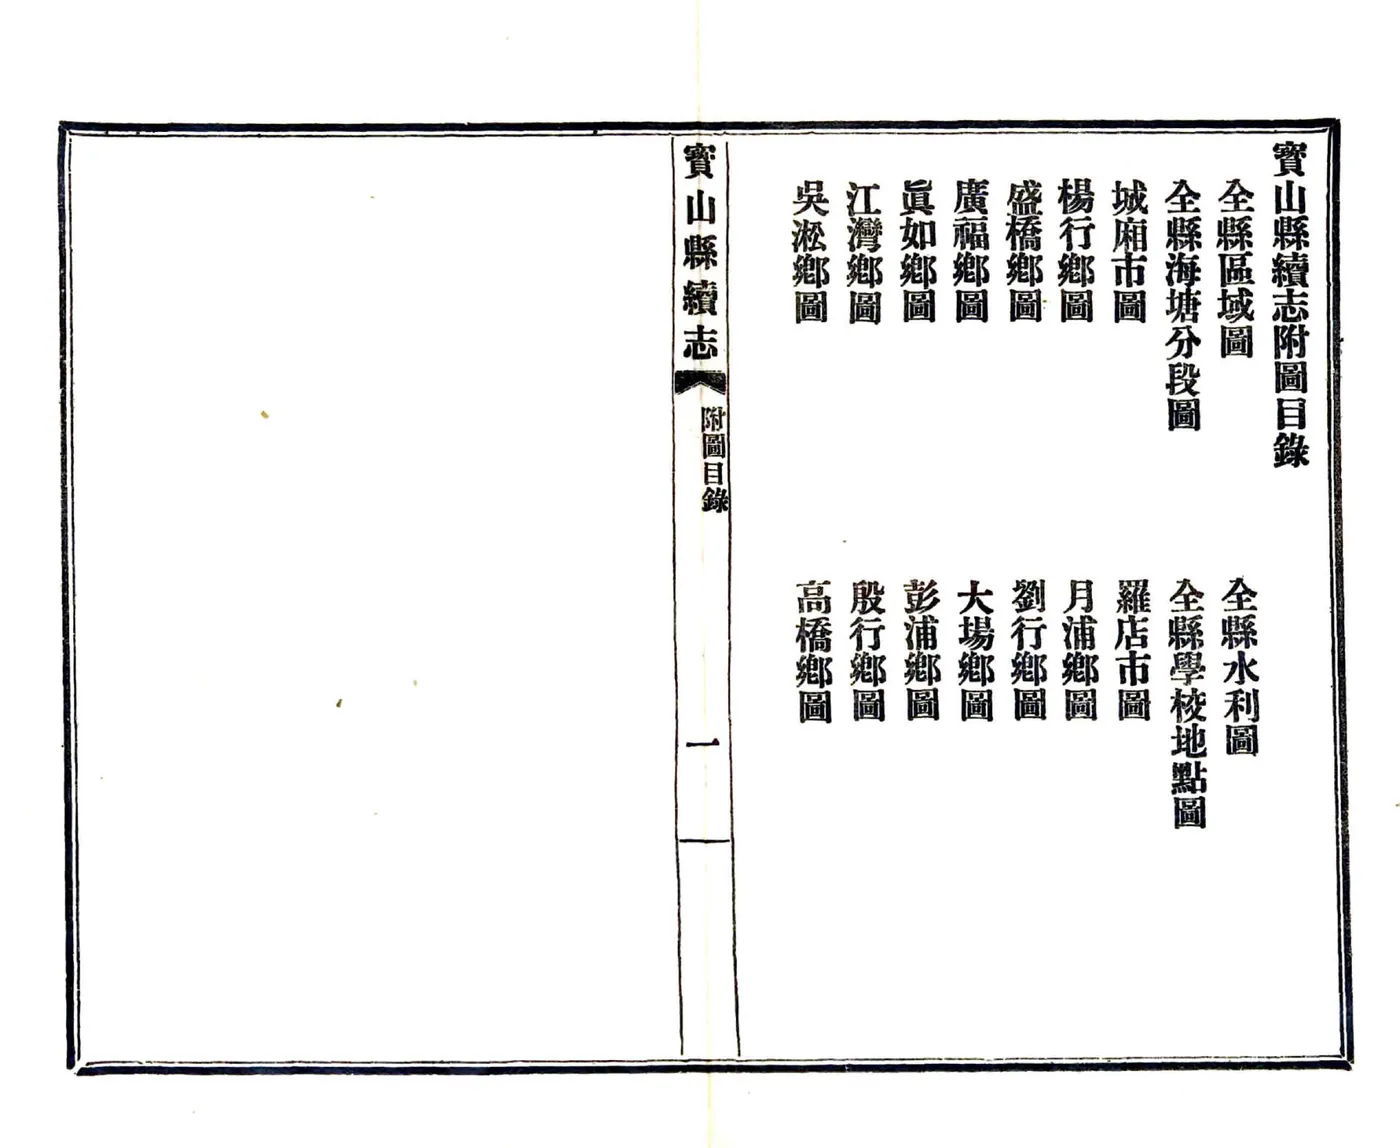 寳山縣續志附圖目錄
全縣區域圖
全縣水利圖
全縣海塘分段圖
全縣學校地點圖
城廂市圖
羅店市圖
楊行鄉圖
月浦鄉圖
盛橋鄉圖
劉行鄉圖
廣福鄉圖
大場鄉圖
眞如鄉圖
彭浦鄉圖
江灣鄉圖
殷行鄉圖
吳淞鄉圖
高橋鄉圖
寳山縣續志
附圖目錄
一